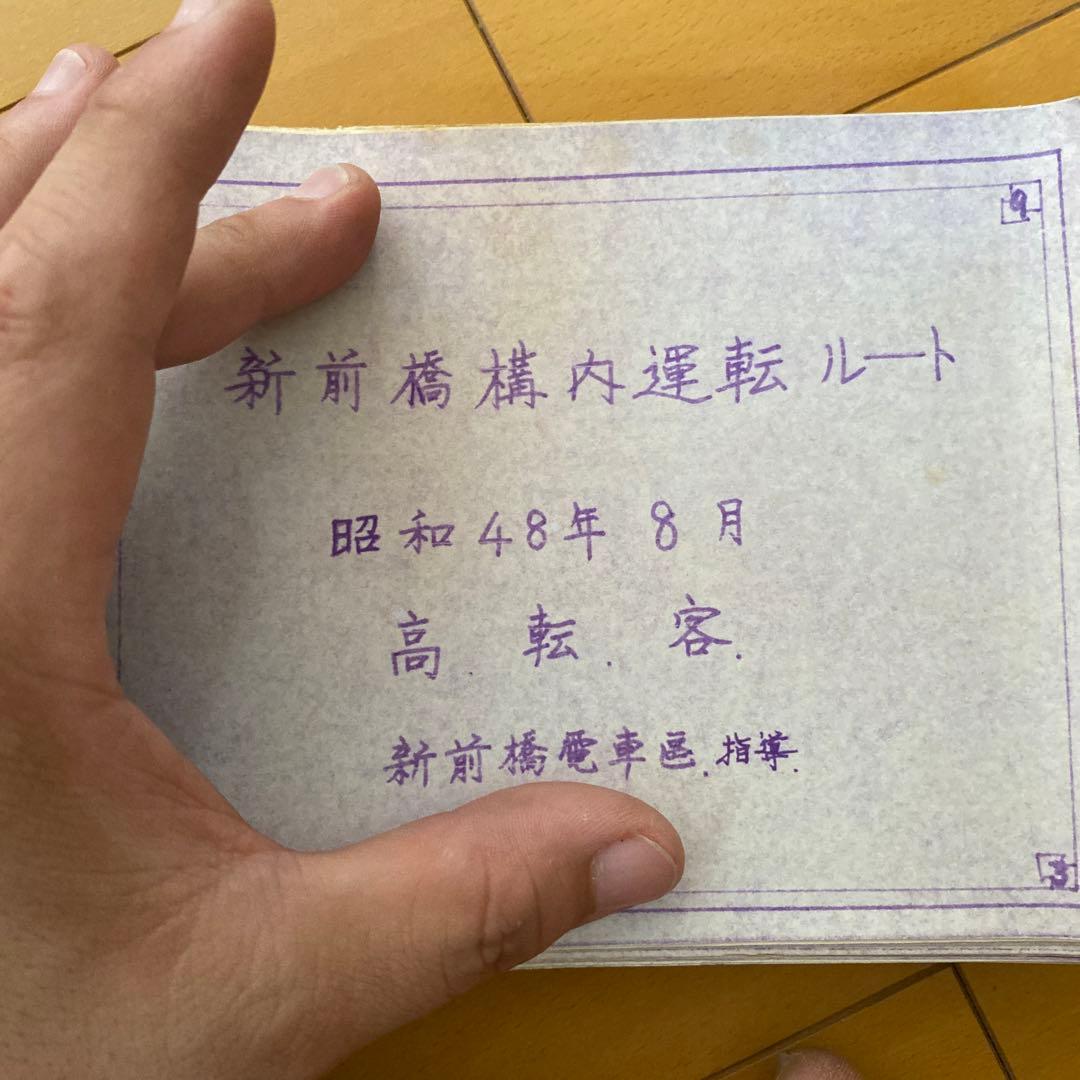 9
新前橋構内運転ルート
昭和48年8月
高.転.客.
新前橋電車區.指導.